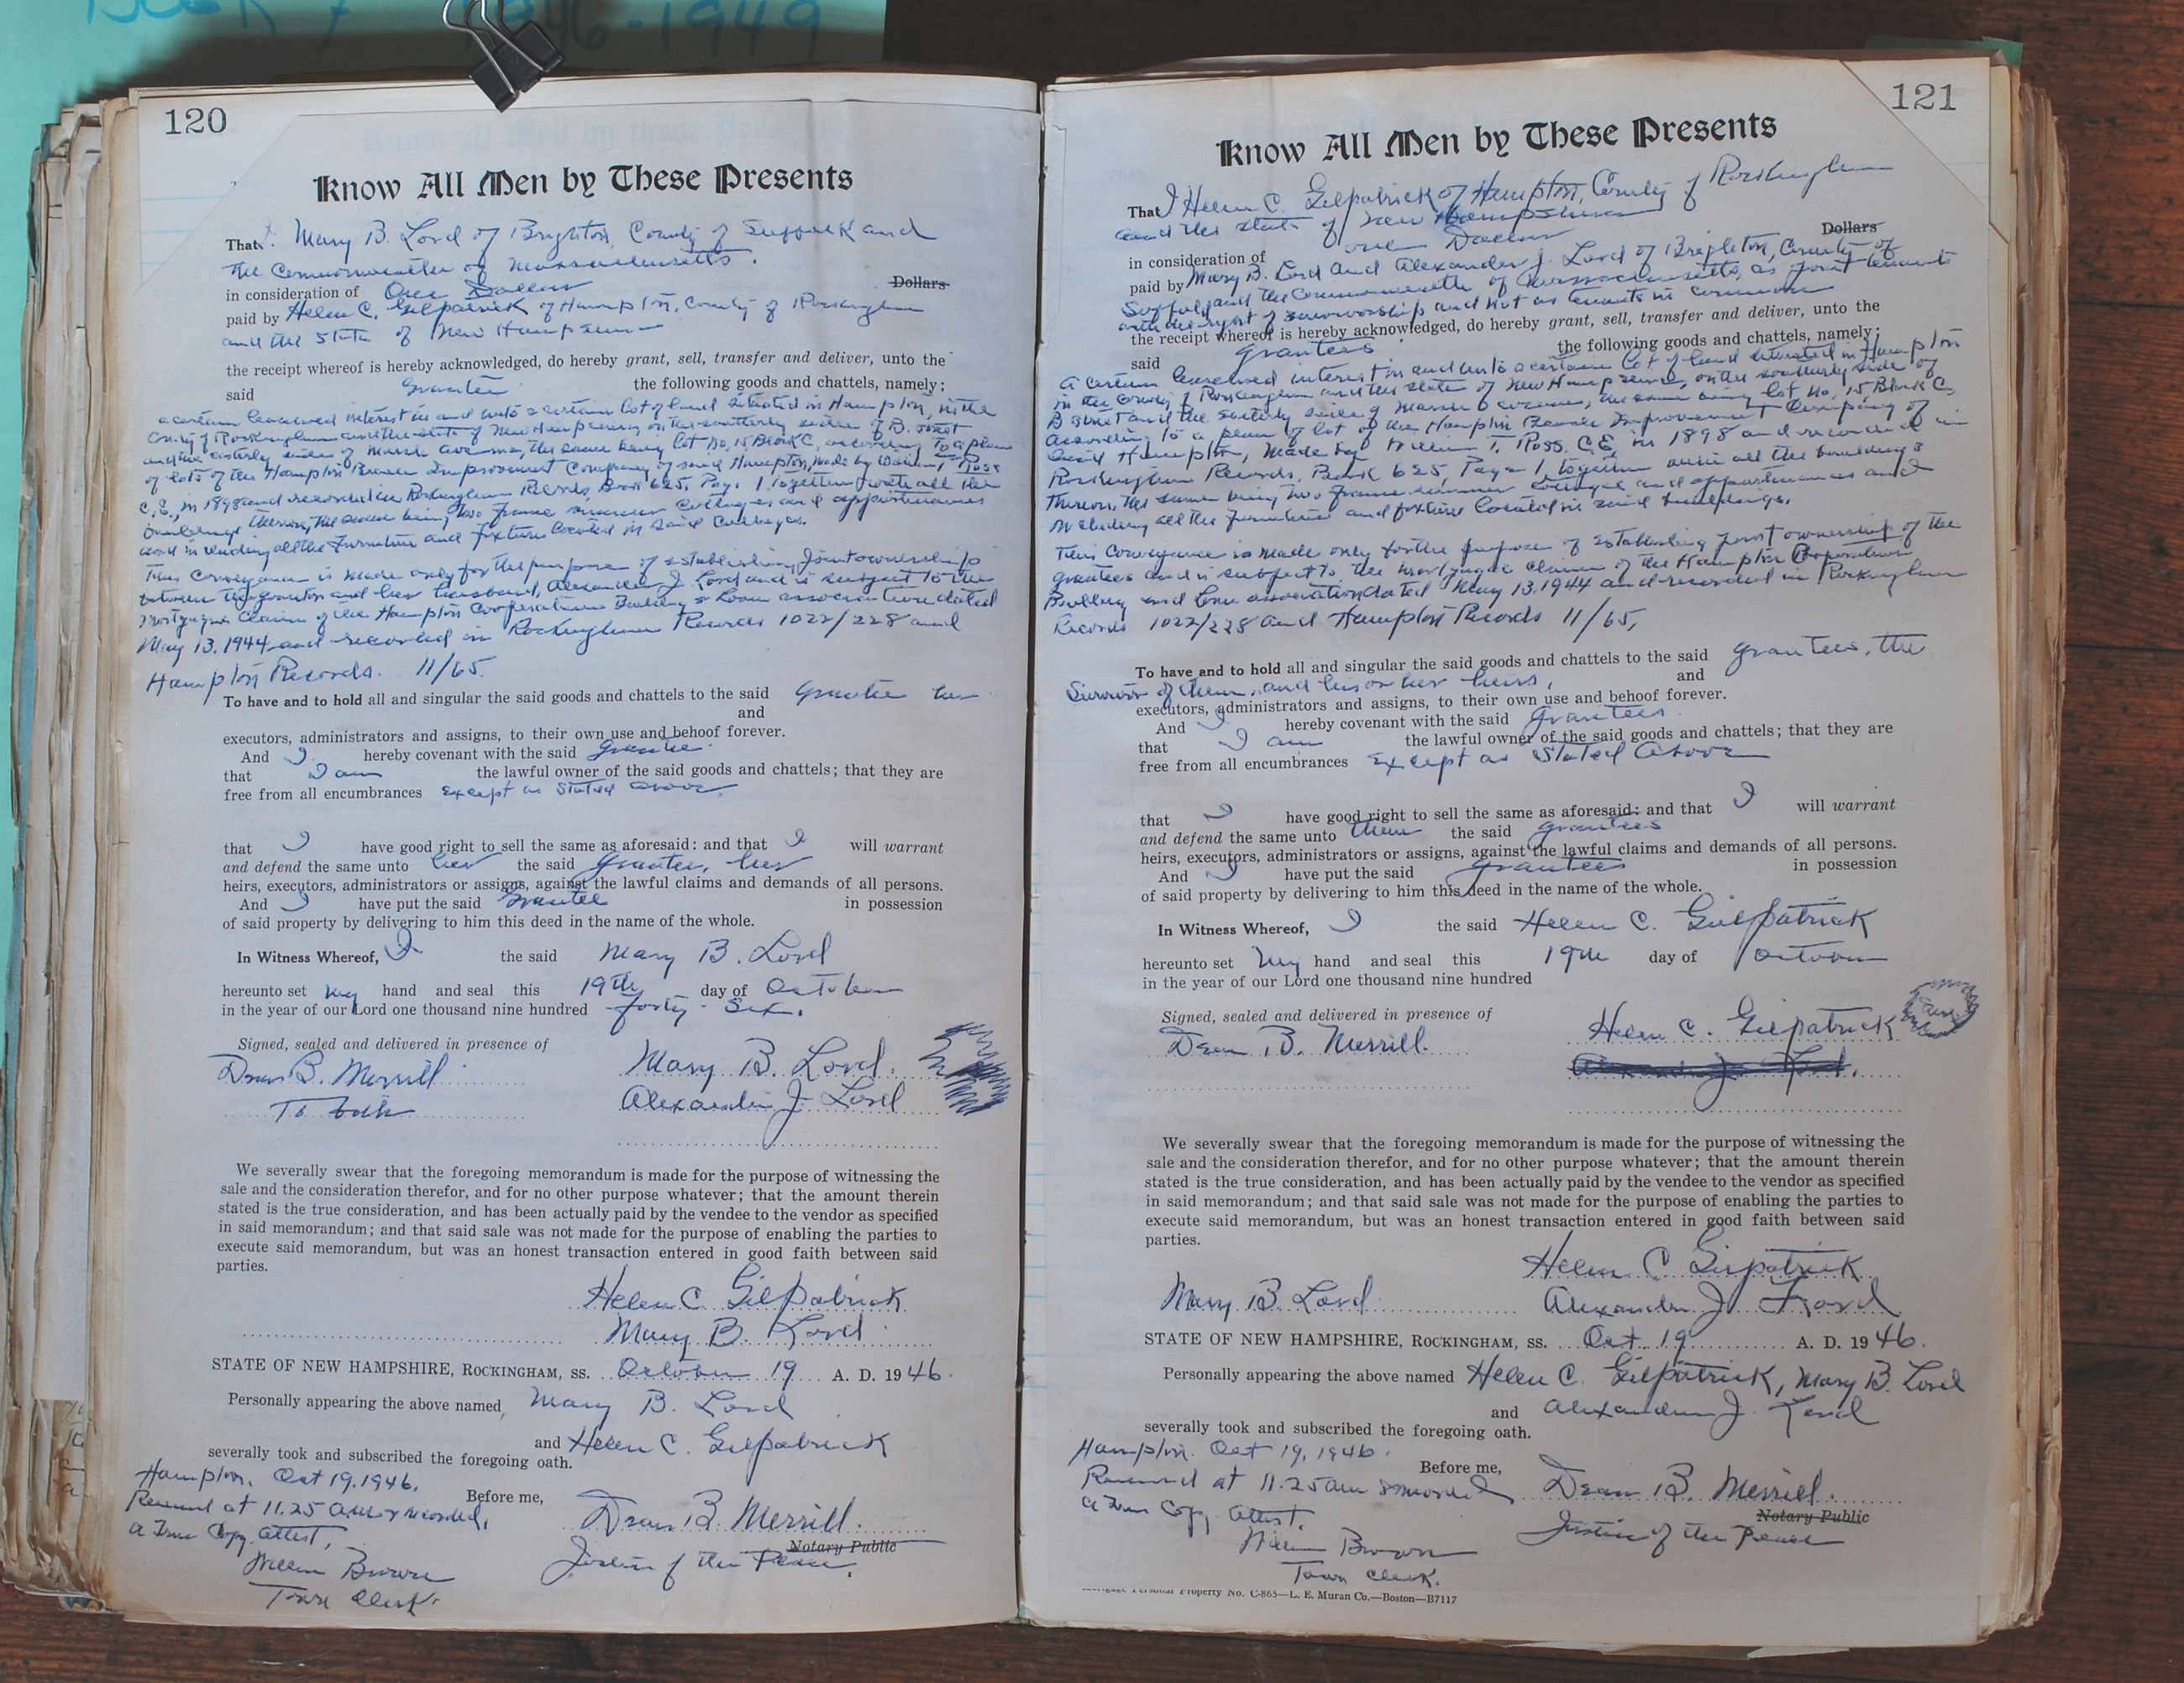 1946-1949
120
Know All Men by These Presents
That I. Mary B. Lord of Brighton, County of Suffolk and
the Commonwealth of Massachusetts.
in consideration of One Dollar Dollars
paid by Helen C. Gilpatrick of Hampton, County of Rockingham
and the State of New Hampshire
the receipt whereof is hereby acknowledged, do hereby grant, sell, transfer and deliver, unto the
said Grantee the following goods and chattels, namely;
a certain leasehold interest in and unto a certain lot of land situated in Hampton, in the
County of Rockingham and the State of New Hampshire on the southerly side of B. Street
and the easterly side of Marsh avenue, the same being lot No. 15 Block C, according To a plan
of lots of the Hampton Beach Improvement Company of said Hampton, made by William T Ross
C.E., in 1898 and recorded in Rockingham Records, Book 625, Page 1 together with all the
buildings thereon, the same being two frame summer cottages and appurtenances
and including all the furniture and fixtures located in said Cottages.
This Conveyance is made only for the purpose of establishing Joint ownership
between the grantor and her husband, Alexander J. Lord and is subject to the
mortgage claim of the Hampton Cooperative Building & Loan association dated
May 13, 1944 and recorded in Rockingham Records 1022/228 and
Hampton Records. 11/65.
To have and to hold all and singular the said goods and chattels to the said Grantee her
and
executors, administrators and assigns, to their own use and behoof forever.
And I hereby covenant with the said Grantee.
that I am the lawful owner of the said goods and chattels; that they are
free from all encumbrances except as stated above
that I have good right to sell the same as aforesaid: and that I will warrant
and defend the same unto her the said grantee, her
heirs, executors, administrators or assigns, against the lawful claims and demands of all persons.
And I have put the said Grantee in possession
of said property by delivering to him this deed in the name of the whole.
In Witness Whereof, I the said Mary B. Lord
hereunto set my hand and seal this 19th day of October
in the year of our Lord one thousand nine hundred forty-six.
Signed, sealed and delivered in presence of
Dean B. Merrill Mary B. Lord.
To both Alexander J. Lord
We severally swear that the foregoing memorandum is made for the purpose of witnessing the
sale and the consideration therefor, and for no other purpose whatever; that the amount therein
stated is the true consideration, and has been actually paid by the vendee to the vendor as specified
in said memorandum; and that said sale was not made for the purpose of enabling the parties to
execute said memorandum, but was an honest transaction entered in good faith between said
parties.
Helen C. Gilpatrick
Mary B. Lord
STATE OF NEW HAMPSHIRE, ROCKINGHAM, SS. October 19 A. D. 1946.
Personally appearing the above named, Mary B. Lord
and Helen C. Gilpatrick
severally took and subscribed the foregoing oath.
Hampton. Oct 19, 1946.
Before me,
Received at 11.25 A.M. & recorded,
a True Copy. attest,
Dean B. Merrill.
Notary Public
Justice of the Peace.
William Brown
Town Clerk
121
Know All Men by These Presents
That I Helen C. Gilpatrick of Hampton, County of Rockingham
and the State of New Hampshire
in consideration of one Dollar Dollars
paid by Mary B. Lord and Alexander J. Lord of Brighton, County of
Suffolk and the Commonwealth of Massachusetts, as joint tenants
with the right of survivorship and not as tenants in common
the receipt whereof is hereby acknowledged, do hereby grant, sell, transfer and deliver, unto the
said grantees the following goods and chattels, namely;
a certain leasehold interest in and unto a certain lot of land situated in Hampton
in the County of Rockingham and the State of New Hampshire, on the southerly side of
B street and the easterly side of Marsh avenue, the same being lot No. 15 Block C,
according to a plan of lot of the Hampton Beach Improvement Company of
said Hampton, made by William T. Ross, C.E. in 1898 and recorded in
Rockingham Records, Book 625, Page 1, together with all the buildings
thereon, the same being two frame summer cottages and appurtenances and
including all the furniture and fixtures located in said buildings.
This Conveyance is made only for the purpose of establishing joint ownership of the
grantees and is subject to the mortgage claim of the Hampton Cooperative
Building and Loan association dated May 13, 1944 and recorded in Rockingham
Records 1022/228 and Hampton Records 11/65,
To have and to hold all and singular the said goods and chattels to the said grantees, the
Survivor of them, and his or her heirs, and
executors, administrators and assigns, to their own use and behoof forever.
And I hereby covenant with the said Grantees
that I am the lawful owner of the said goods and chattels; that they are
free from all encumbrances except as stated above
that I have good right to sell the same as aforesaid: and that I will warrant
and defend the same unto them the said grantees
heirs, executors, administrators or assigns, against the lawful claims and demands of all persons.
And I have put the said grantees in possession
of said property by delivering to him this deed in the name of the whole.
In Witness Whereof, I the said Helen C. Gilpatrick
hereunto set my hand and seal this 19th day of October
in the year of our Lord one thousand nine hundred
Signed, sealed and delivered in presence of
Dean B. Merrill. Helen C. Gilpatrick
Alexander J. Lord.
We severally swear that the foregoing memorandum is made for the purpose of witnessing the
sale and the consideration therefor, and for no other purpose whatever; that the amount therein
stated is the true consideration, and has been actually paid by the vendee to the vendor as specified
in said memorandum; and that said sale was not made for the purpose of enabling the parties to
execute said memorandum, but was an honest transaction entered in good faith between said
parties.
Helen C Gilpatrick
Mary B Lord Alexander J. Lord
STATE OF NEW HAMPSHIRE, ROCKINGHAM, SS. Oct. 19 A. D. 1946.
Personally appearing the above named Helen C. Gilpatrick, Mary B. Lord
and Alexander J. Lord
severally took and subscribed the foregoing oath.
Hampton. Oct 19, 1946.
Before me,
Received at 11.25 am & recorded
a True Copy. attest.
Dean B. Merrill.
Notary Public
Justice of the Peace
William Brown
Town Clerk.
Personal Property No. C-865—L. E. Muran Co.—Boston—B7117